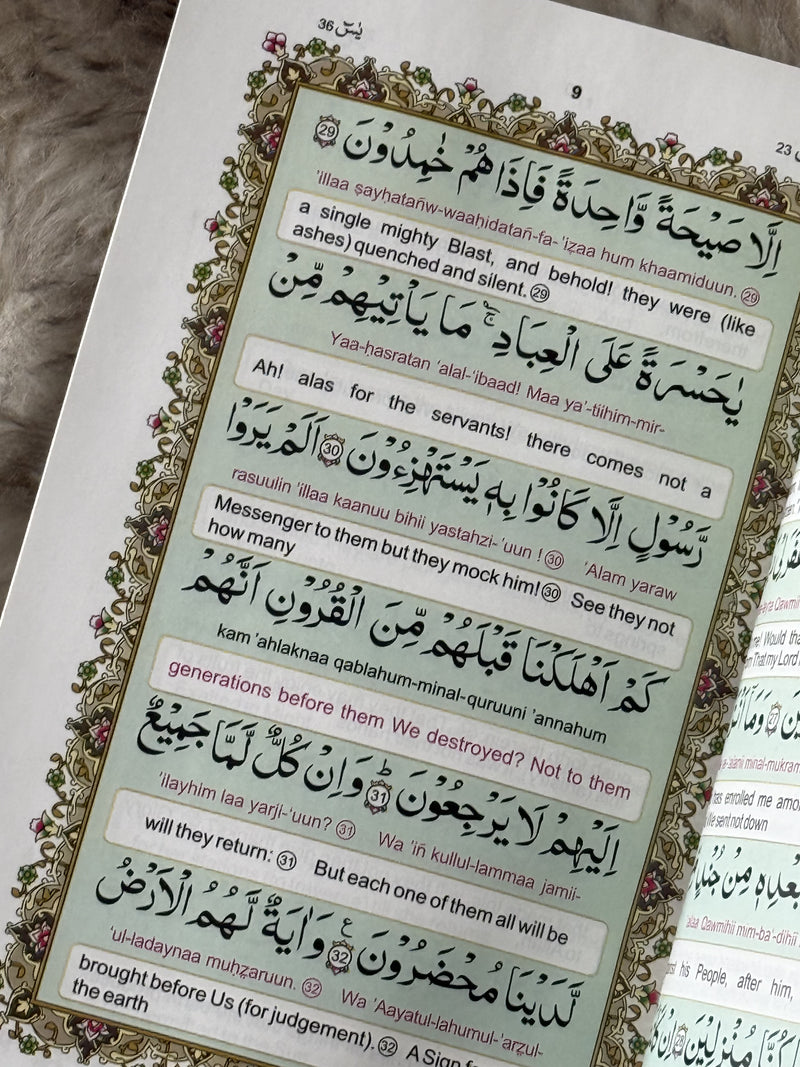 يٰسٓ 36
9
23
اِلَّا صَيْحَةً وَّاحِدَةً فَاِذَا هُمْ خٰمِدُوْنَ ﴿29﴾
'illaa ṣayḥatañw-waaḥidatañ-fa-'iẓaa hum khaamiduun. (29)
a single mighty Blast, and behold! they were (like
ashes) quenched and silent. (29)
يٰحَسْرَةً عَلَى الْعِبَادِ ۚ مَا يَاْتِيْهِمْ مِّنْ
Yaa-ḥasratan 'alal-'ibaad! Maa ya'-tiihim-mir-
Ah! alas for the servants! there comes not a
رَّسُوْلٍ اِلَّا كَانُوْا بِهٖ يَسْتَهْزِءُوْنَ ﴿30﴾ اَلَمْ يَرَوْا
rasuulin 'illaa kaanuu bihii yastahzi-'uun ! (30) 'Alam yaraw
Messenger to them but they mock him! (30) See they not
how many
كَمْ اَهْلَكْنَا قَبْلَهُمْ مِّنَ الْقُرُوْنِ اَنَّهُمْ
kam 'ahlaknaa qablahum-minal-quruuni 'annahum
generations before them We destroyed? Not to them
اِلَيْهِمْ لَا يَرْجِعُوْنَ ﴿31﴾ ؕ وَاِنْ كُلٌّ لَّمَّا جَمِيْعٌ
'ilayhim laa yarji-'uun? (31) Wa 'iñ kullul-lammaa jamii-
will they return: (31) But each one of them all will be
لَّدَيْنَا مُحْضَرُوْنَ ﴿32﴾ ع وَاٰيَةٌ لَّهُمُ الْاَرْضُ
'ul-ladaynaa muḥẓaruun. (32) Wa 'Aayatul-lahumul-'arẓul-
brought before Us (for judgement). (32) A Sign
the earth
Qawmih
Would tha
That my Lord
وَمَآ
minal-mukram
has enrolled me amo
sent not down
بَعْدِهٖ مِنْ جُنْدٍ
Qawmihii mim-ba'-dihii
his People, after him,
كُنَّا مُنْزِلِيْنَ ﴿28﴾ اِنْ